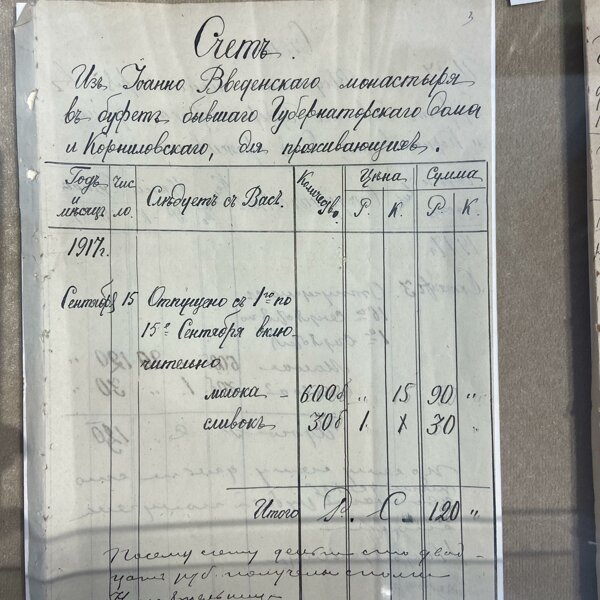 3
Счетъ.
Изъ Іоанно Введенскаго монастыря
въ буфетъ бывшаго Губернаторскаго Дома
и Корниловскаго, для проживающихъ.
Годъ и мѣсяцъ Число. Слѣдуетъ съ Васъ. Количество. Цѣна Сумма
Р. К. Р. К.
1917г.
Сентября 15 Отпущено съ 1го по
15е Сентября вклю-
чительно
молока - 600б „ 15 90 „
сливокъ 30б 1 х 30 „
Итого Р. С. 120 „
Посему счету деньги сто двад-
цать руб. получены сполна